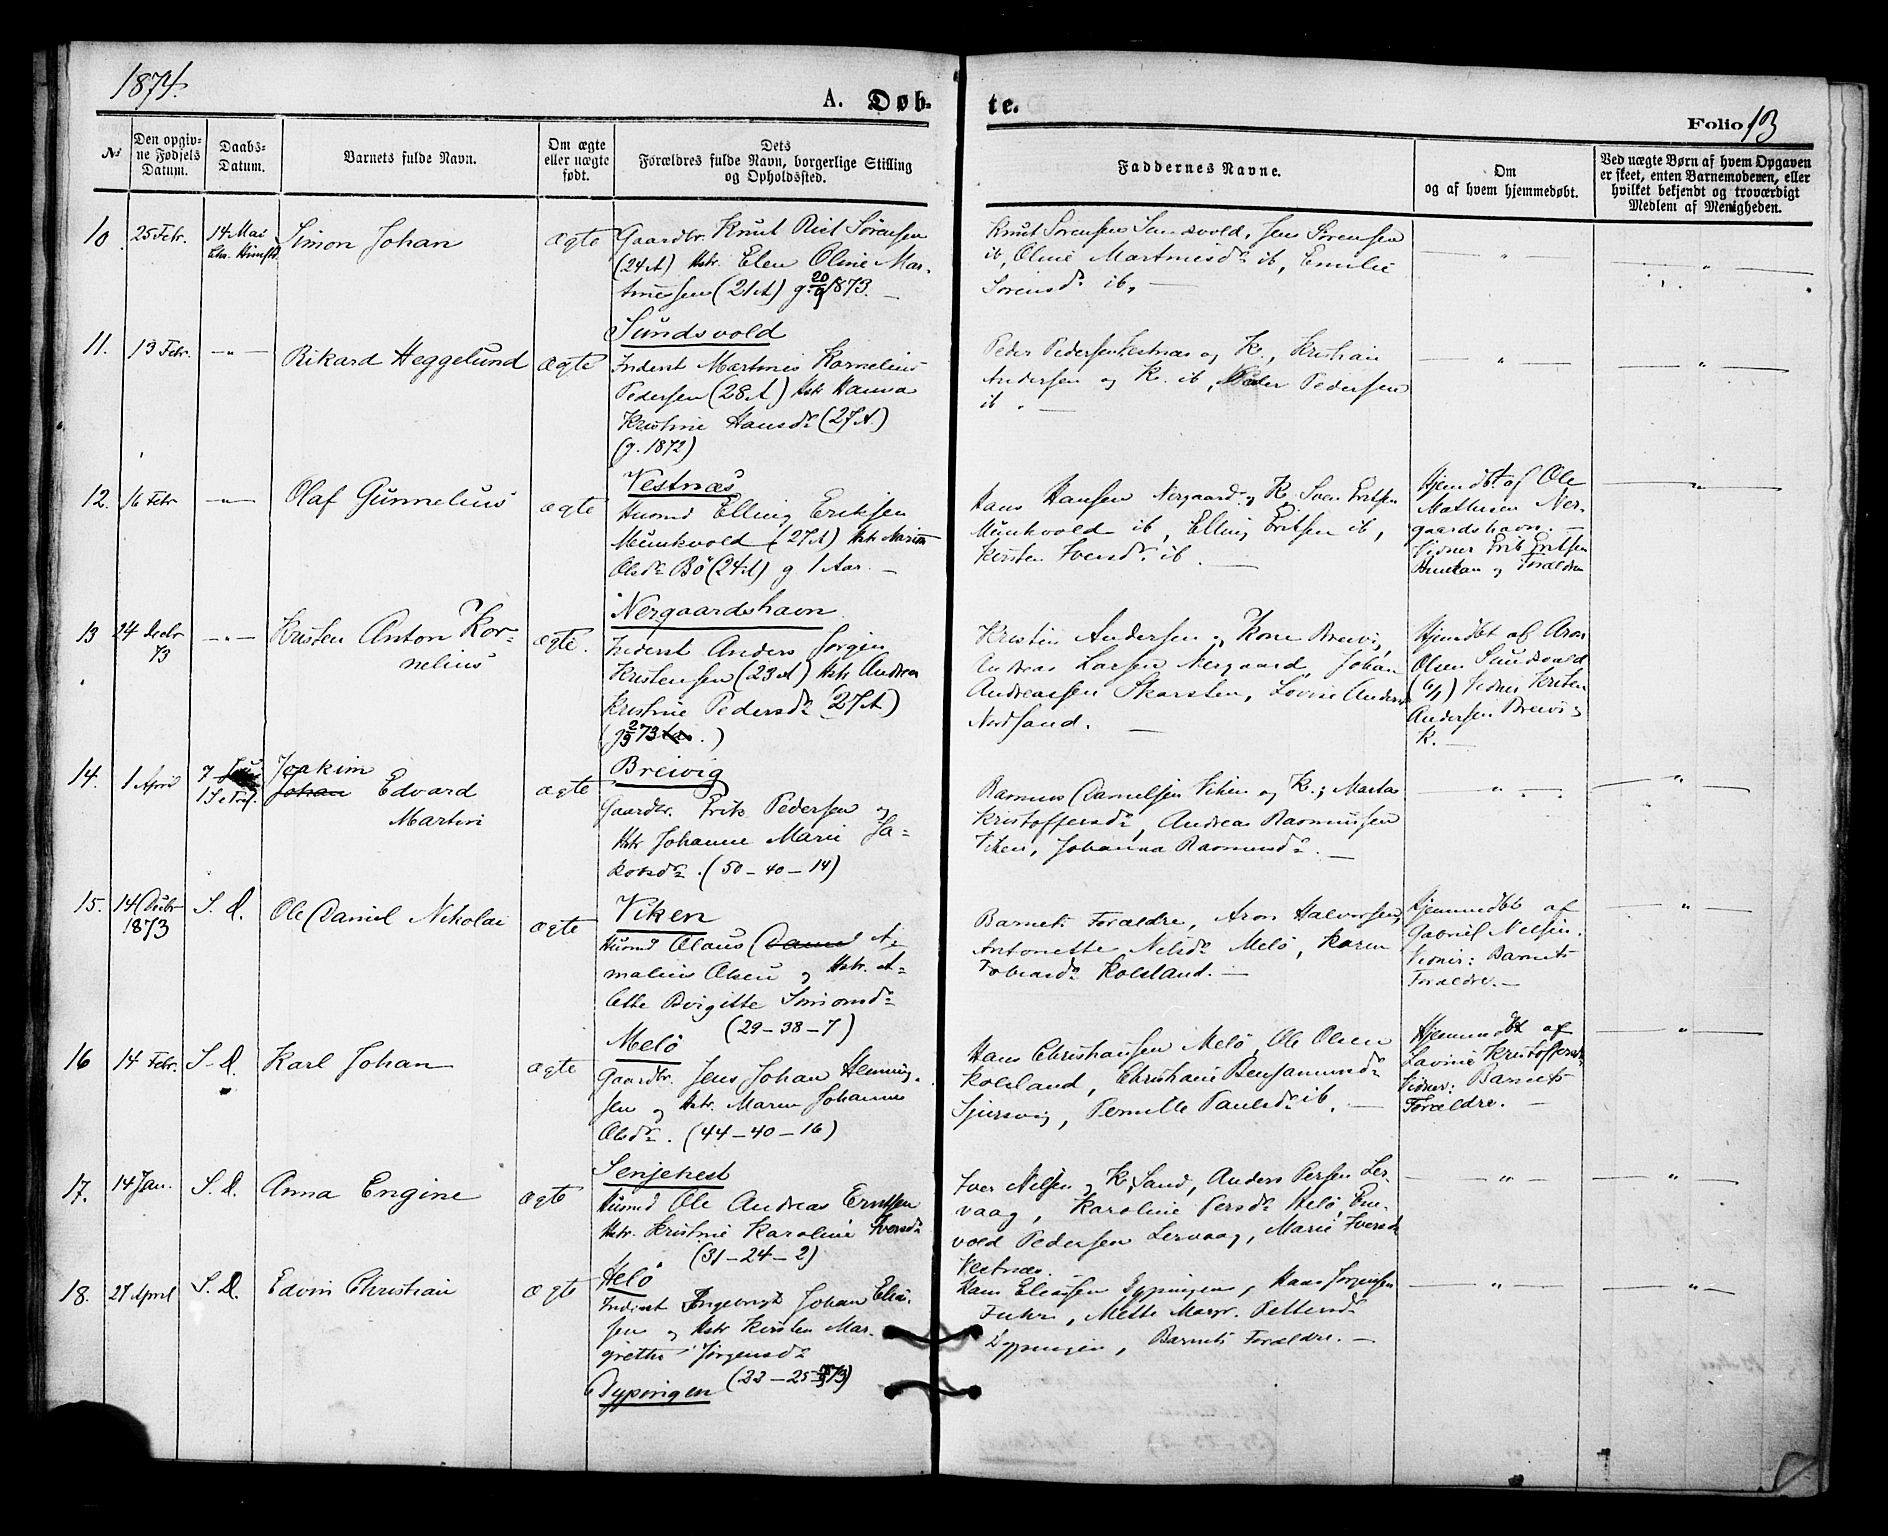 1874.
A. Døb-
te.
Folio 13
No
Den opgiv-
ne Fødsels
Datum.
Daabs-
Datum.
Barnets fulde Navn.
Om ægte
eller uægte
født.
Dets
Forældres fulde Navn, borgerlige Stilling
og Opholdssted.
Faddernes Navne.
Om
og af hvem hjemmedøbt.
Ved uægte Børn af hvem Opgaven
er skeet, enten Barnemoderen, eller
hvilket bekjendt og troværdigt
Medlem af Menigheden.
10 25 Febr. 14 Mai
Chr. Himfd.
Simon Johan
ægte
Gaardbr. Knut Rist Sörensen
(24 A) Hstr. Elen Oline Mar-
tinessen (21 A) g. 20/9 1873. —
Sundsvold
Knut Sörensen Sundsvold, Jens Sörensen
ib, Oline Martinesdr ib, Emilie
Sörensdr ib. —
11. 13 Febr. — " —
Rikard Heggelund
ægte
Inderst Martines Kornelius
Pedersen (28 A) Hstr Hanna
Kristine Hansdr (27 A.)
(g. 1872)
Vestnæs
Peder Pedersen Vestnæs og K., Kristian
Andersen og K. ib, Peder Pedersen
ib. —
12. 16 Febr — " —
Olaf Gunnelius
ægte
Husmd Elling Eriksen
Munkvold (27 A) Hstr Marith
Olsdr Bö (24 A) g 1 Aar. —
Nergaardshavn
Hans Hansen Nergaard og K. Sven Eritsen
Munkvold ib, Elling Eritsen ib,
Kersten Iversdr ib. —
Hjemdbt af Ole
Mathisen Ner-
gaardshavn. —
Vidner Erik Eritsen
og Forældre
13 24 Decbr
73 — " —
Kristen Anton Kor-
nelius
ægte.
Inderst Anders Jörgen
Kristensen (23 A) Hstr Andrea
Kristine Pedersdr (27 A)
(g 2/9 73.)
Breivig
Kristen Andersen og Kone Breivig,
Andreas Larsen Nergaard, Johan
Andreassen Skarsten, Lovine Andersd
Nordsand. —
Hjemdbt af Aron
Olsen Sundsvold
(6/1) Vidner Kristen
Andersen Breivig
K. —
14. 1 April 7
Joakim
Johan Edvard
Martin
ægte
Gaardbr. Erik Pedersen og
Hstr Johanne Marie Ja-
kobsdr. (50 – 40 – 14)
Viken
Rasmus Danielsen Viken og K., Martha
Kristoffersdr, Andreas Rasmussen
Viken, Johanna Rasmusdr. —
15. 14 Decbr
1873 S. D.
Ole Daniel Nikolai
ægte
Husmd Olaus Daniel A-
malius Olsen og Hstr. A-
lette Birgitte Simonsdr
(29 – 38 – 7)
Melö
Barnets Forældre, Aron Halvorsen,
Antonette Nilsdr Melö, Karen
Tobiasdr Kolsland. —
Hjemmedbt af
Gabriel Nilsen.
Vidner: Barnets
Forældre. —
16 14 Febr. S. D.
Karl Johan
ægte
Gaardbr. Jens Johan Henning-
sen og Hstr. Maren Johanna
Olsdr. (44 – 40 – 16)
Senjehest
Hans Christiansen Melö, Ole Olsen
Kolsland, Christiane Benjaminsdr
Sjursvig, Pernille Paulsdr ib. —
Hjemmedbt af
Lavine Kristoffersdr
Vidner: Barnets
Forældre. —
17. 14 Jan. S. D.
Anna Engine
ægte
Husmd Ole Andreas Erntsen
Hstr. Kristine Karoline Iversdr
(31 – 24 – 2)
Helö
Iver Nilsen og K. Sand, Anders Persen Ler-
vaag, Karoline Persdr Helö, En-
vold Pedersen Lervaag, Marie Iversdr
Vestnæs.
18. 27 April S. D.
Edvin Christian
ægte
Inderst Ingebrigt Johan Elia-
sen og Hstr Kirsten Mar-
grethe Jörgensdr
(22 – 25 – 73)
Dypingen
Hans Eliassen Dypingen, Hans Jörgensen
Mette Margr. Pettersdr
Dypingen, Barnets Forældre. —